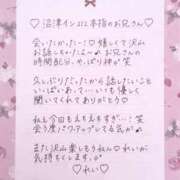 ♡沼津イン212本指のお兄さん♡
会いたかったー！♡嬉しくて沢山
お話しちゃったな〜♪お兄さんの
時間配分さ、やっぱり神が笑
久しぶりだったから話したいこと
いっぱいあって、いつも優しく
聞いてくれてありがとう♡
私も今回もえもえすぎ…！笑
会う度パワーアップしてる気が♪
また沢山楽しもうねん♡れいが
気持ちくします♡
♡れい♡